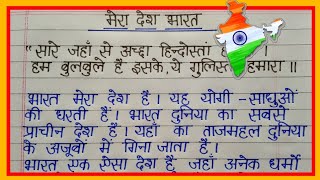 मेरा देश भारत
"सारे जहाँ से अच्छा हिन्दोस्तां
हम बुलबुले है इसके, ये गुलिस्तां हमारा ॥
भारत मेरा देश है । यह योगी - साधुओं
की धरती है । भारत दुनिया का सबसे
प्राचीन देश है । यहाँ का ताजमहल दुनिया
के अजूबों में गिना जाता है ।
भारत एक ऐसा देश है, जहाँ अनेक धर्मो